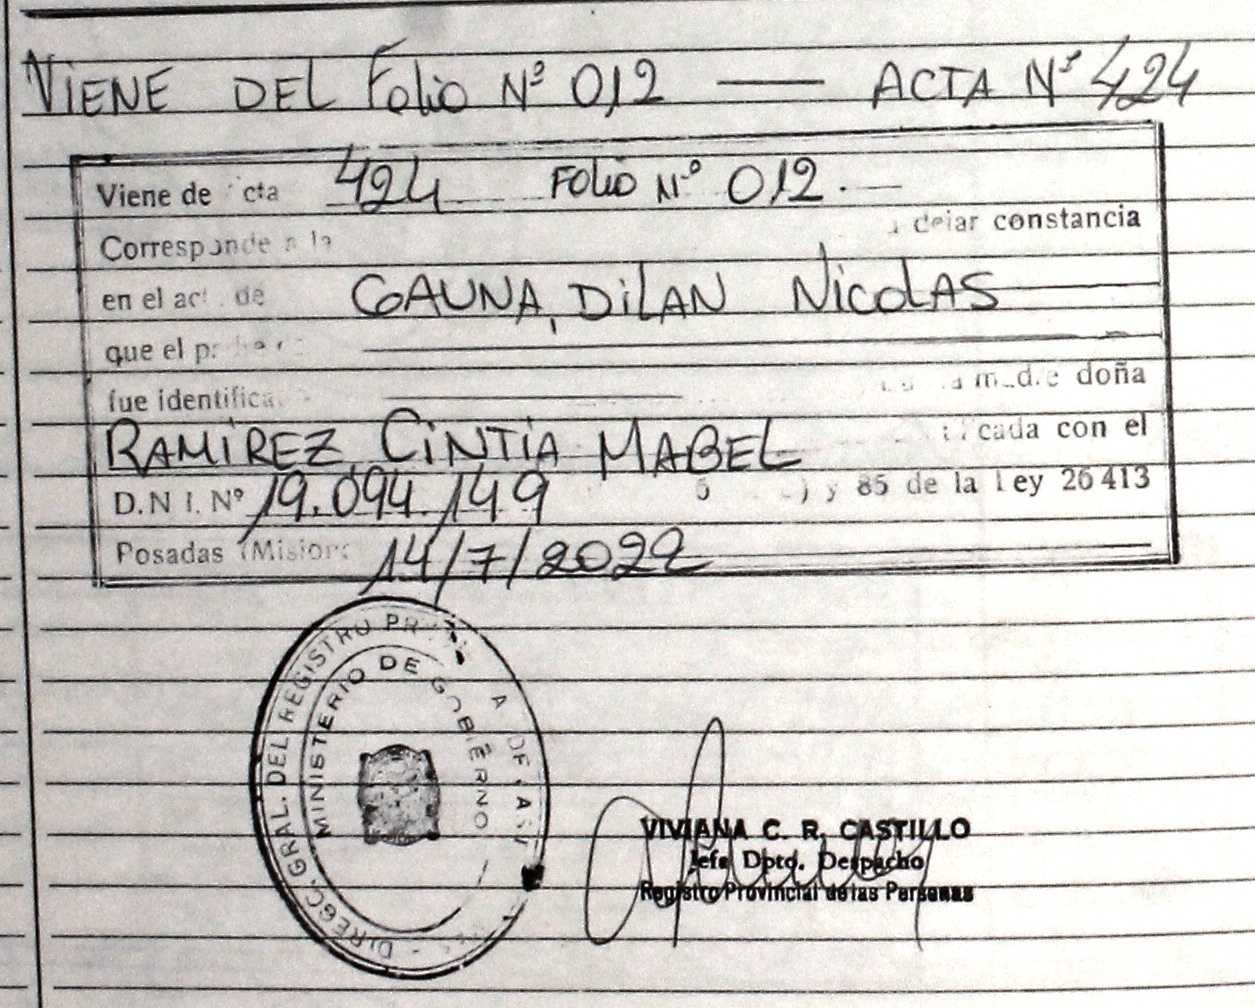 VIENE DEL FOLIO Nº 012 — ACTA Nº 424
Viene de cta 424 FOLIO Nº 012.—
dejar constancia
Corresponde a la
en el act de GAUNA, DILAN NICOLAS
que el
fue identifica
madre doña
RAMÍREZ CINTIA MABEL cada con el
D.N I. Nº 19.094.149 ) y 85 de la Ley 26 413
Posadas (Mision 14/7/2022
DIRECC. GRAL. DEL REGISTRO
MINISTERIO DE GOBIERNO
VIVIANA C. R. CASTILLO
Jefa Dpto. Despacho
Registro Provincial de las Personas